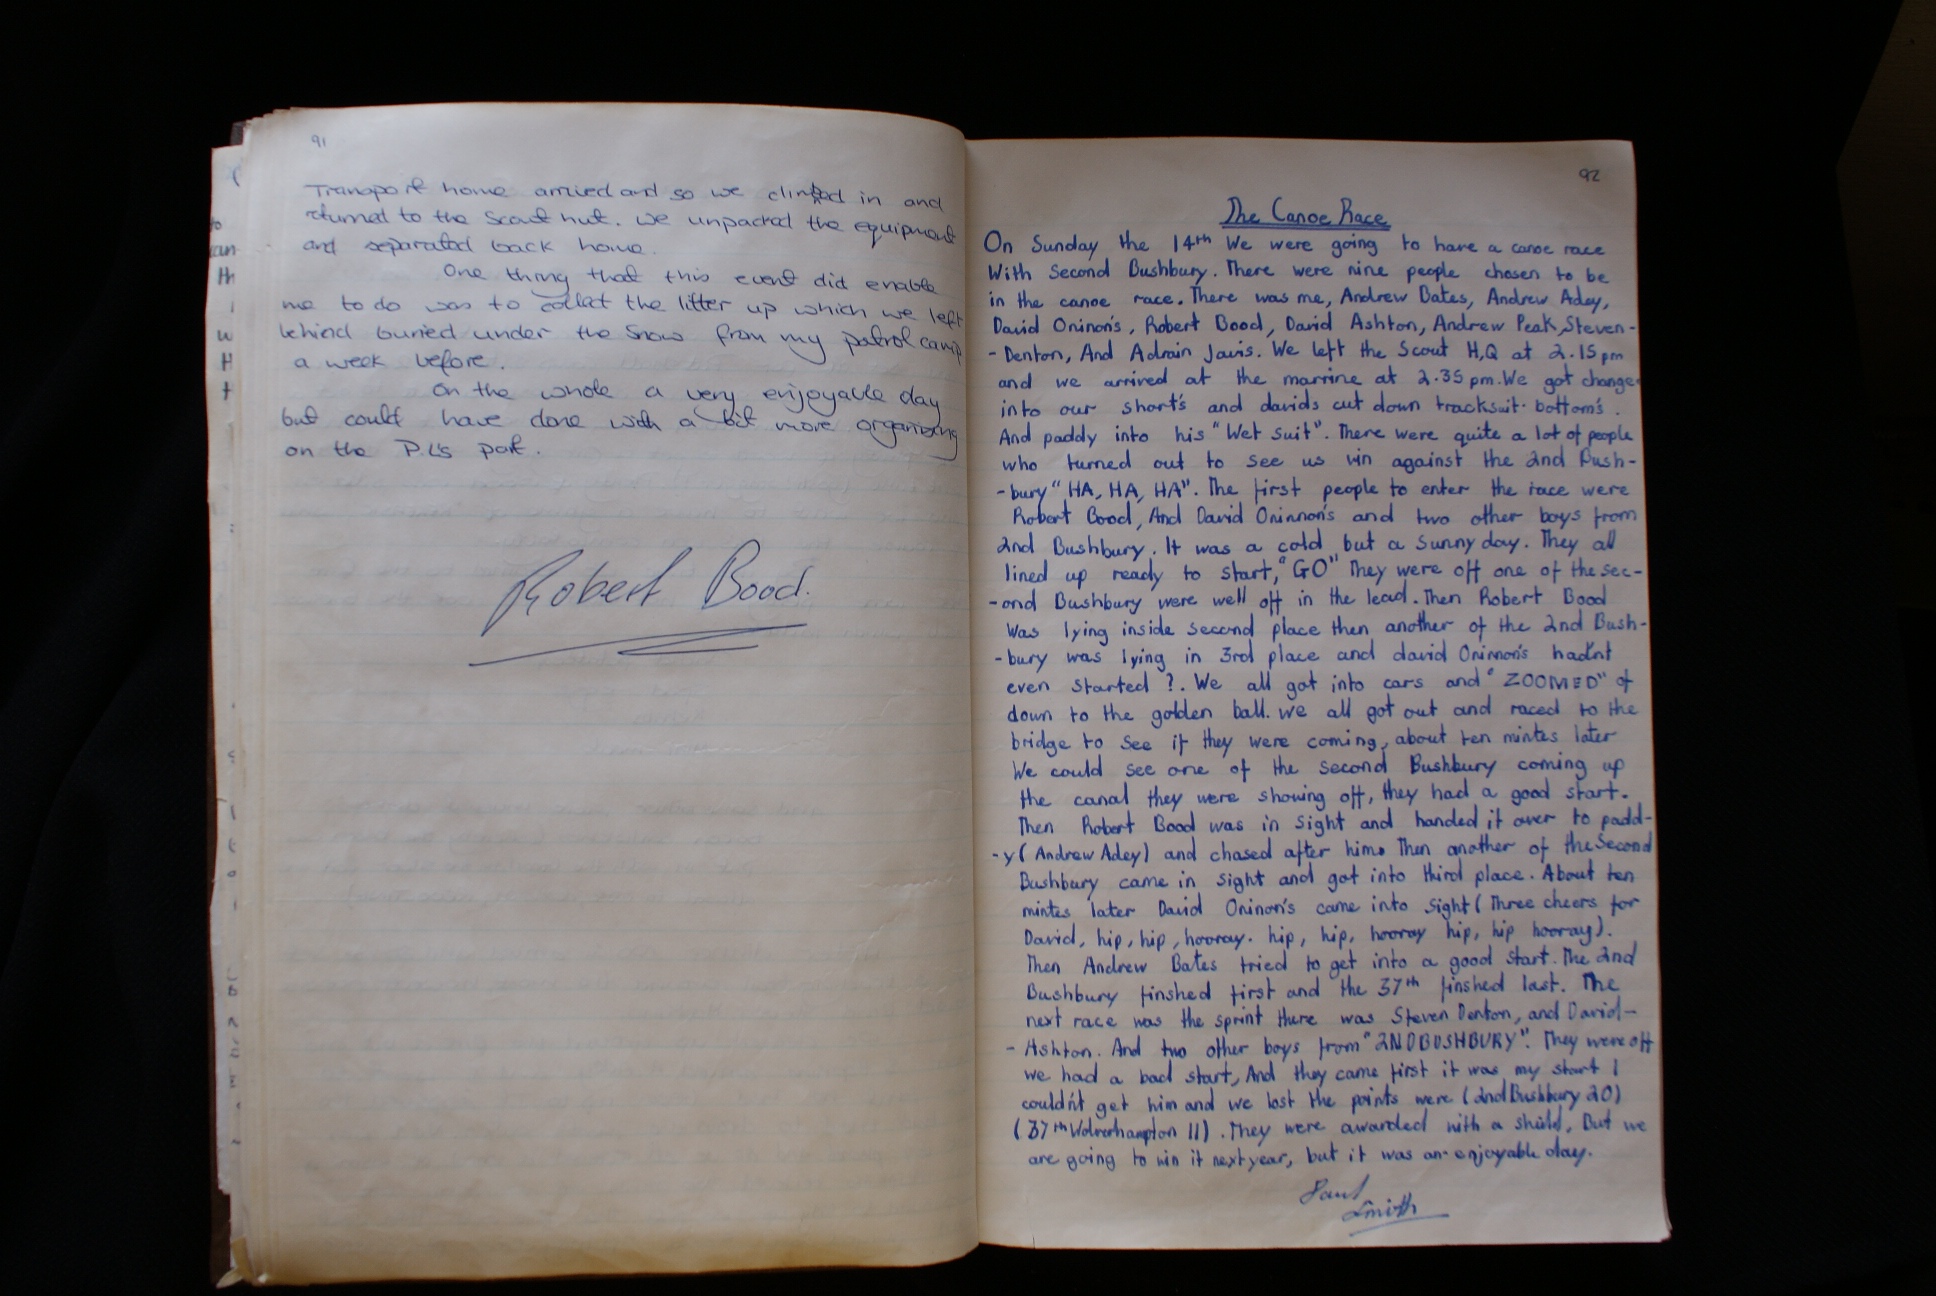 91
Transport home arrived and so we climbed in and
returned to the Scout hut. We unpacked the equipment
and separated back home.
One thing that this event did enable
me to do was to collect the litter up which we left
behind buried under the Snow from my patrol camp
a week before.
On the whole a very enjoyable day
but could have done with a bit more organising
on the P.L's part.
Robert Bood.
92
The Canoe Race
On Sunday the 14th We were going to have a canoe race
With Second Bushbury. There were nine people chosen to be
in the canoe race. There was me, Andrew Bates, Andrew Adey,
David Oninon's, Robert Bood, David Ashton, Andrew Peak, Steven-
- Denton, And Adrain Javis. We left the Scout H,Q at 2.15pm
and we arrived at the marrine at 2.35pm. We got change
into our short's and davids cut down tracksuit bottom's.
And paddy into his "Wet suit". There were quite a lot of people
who turned out to see us win against the 2nd Bush-
-bury "HA, HA, HA". The first people to enter the race were
Robert Bood, And David Oninnon's and two other boys from
2nd Bushbury. It was a cold but a sunny day. They all
lined up ready to start, "GO" They were off one of the sec-
-ond Bushbury were well off in the lead. Then Robert Bood
Was lying inside second place then another of the 2nd Bush-
-bury was lying in 3rd place and david Oninnon's had'nt
even started ?. We all got into cars and "ZOOMED" of
down to the golden ball. we all got out and raced to the
bridge to see if they were coming, about ten mintes later
We could see one of the second Bushbury coming up
the canal they were showing off, they had a good start.
Then Robert Bood was in sight and handed it over to padd-
-y (Andrew Adey) and chased after him. Then another of the Second
Bushbury came in sight and got into third place. About ten
mintes later David Oninon's came into sight (Three cheers for
David, hip, hip, hooray. hip, hip, hooray hip, hip hooray).
Then Andrew Bates tried to get into a good start. The 2nd
Bushbury finshed first and the 37th finshed last. The
next race was the sprint there was Steven Denton, and David-
- Ashton. And two other boys from "2ND BUSHBURY". They were off
we had a bad start, And they came first it was my start I
could'nt get him and we lost the points were (2nd Bushbury 20)
(37th Wolverhampton 11). They were awarded with a shield, But we
are going to win it next year, but it was an enjoyable day.
Paul
Smith